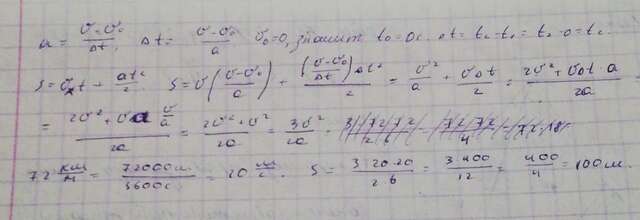 a = (υ - υ₀)/Δt, Δt = (υ - υ₀)/a υ₀ = 0, значит t₀ = 0с. Δt = t₂ - t₁ = t₂ - 0 = t₂
S = υ₀t + at²/2 S = υ((υ - υ₀)/a) + ((υ - υ₀)/Δt)Δt²/2 = υ²/a + υΔt/2 = (2υ² + υΔt·a)/2a =
= (2υ² + υa υ/a)/2a = (2υ² + υ²)/2a = 3υ²/2a =
72 км/ч = 72000м/3600с = 20 м/с. S = 3·20·20/2·6 = 3·400/12 = 400/4 = 100м.